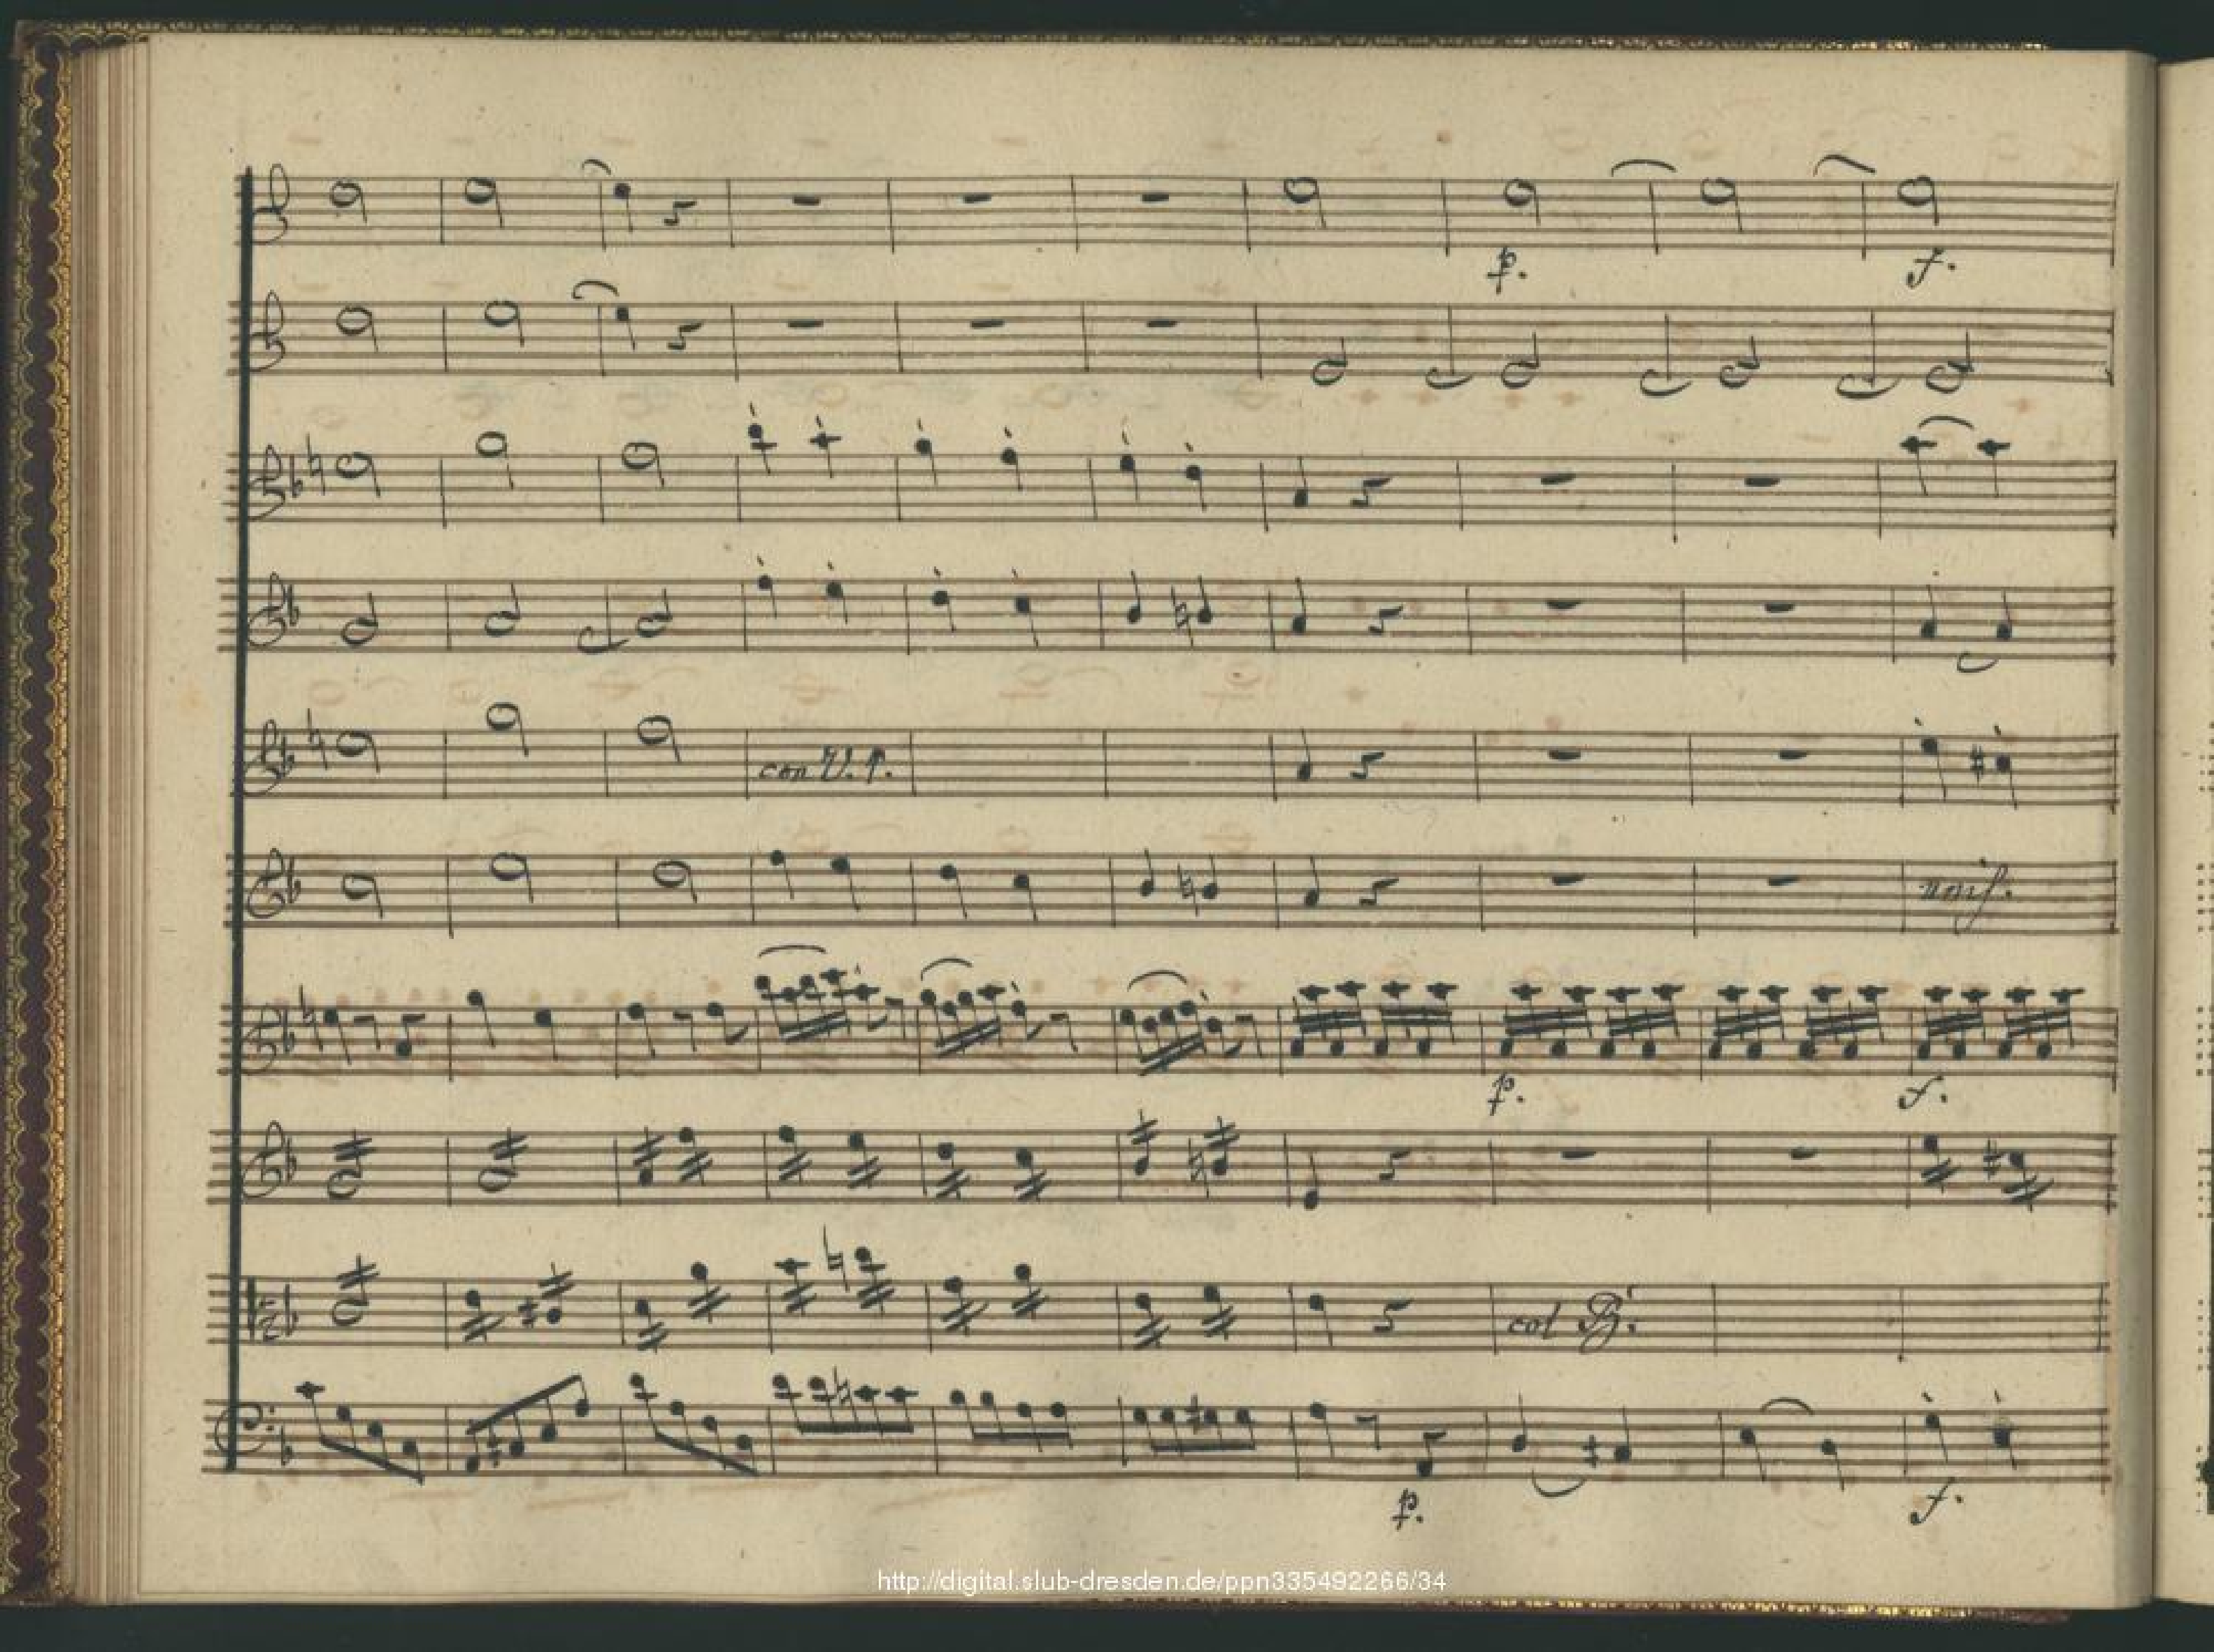 p. f.
con V. 1.
unis.
p. f.
col B.
p. f.
http://digital.slub-dresden.de/ppn335492266/34